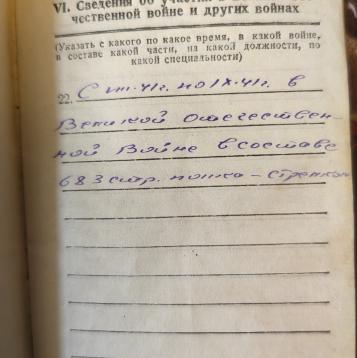 VI. Сведения об участии в
чественной войне и других войнах
(Указать с какого по какое время, в какой войне,
в составе какой части, на какой должности, по
какой специальности)
22. С VII-41г. по IX-41г. в
Великой отечествен-
ной Войне в составе
683 стр. полка – стрелком